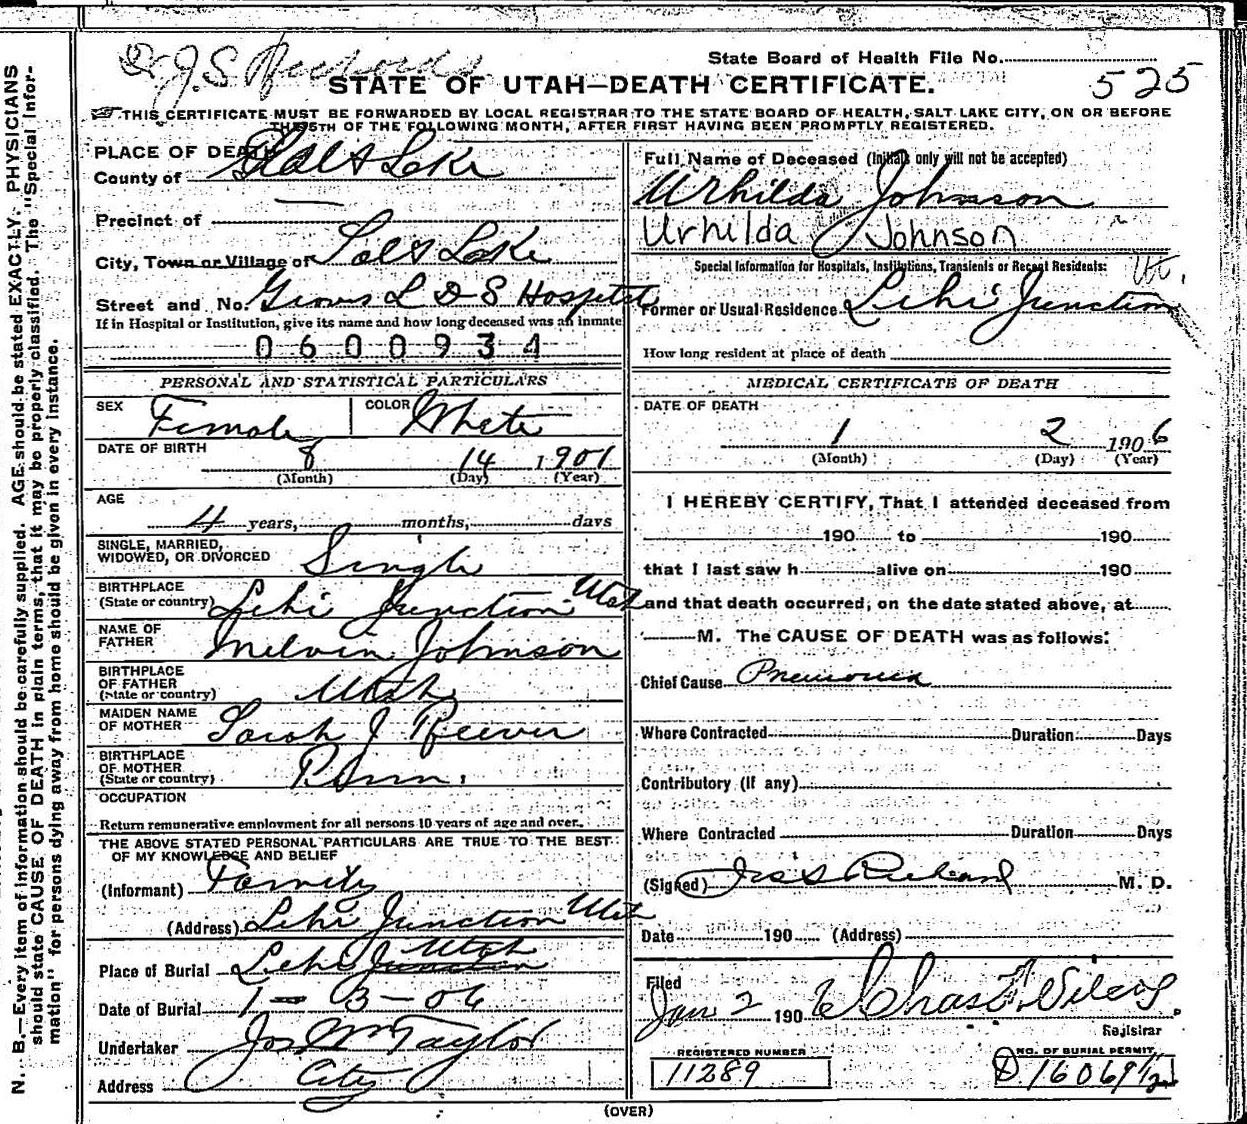 Dr J. S. Richards
State Board of Health File No.
STATE OF UTAH—DEATH CERTIFICATE.
525
THIS CERTIFICATE MUST BE FORWARDED BY LOCAL REGISTRAR TO THE STATE BOARD OF HEALTH, SALT LAKE CITY, ON OR BEFORE
THE 5TH OF THE FOLLOWING MONTH, AFTER FIRST HAVING BEEN PROMPTLY REGISTERED.
N. B.—Every item of information should be carefully supplied. AGE should be stated EXACTLY. PHYSICIANS
should state CAUSE OF DEATH in plain terms, that it may be properly classified. The "Special Infor-
mation" for persons dying away from home should be given in every instance.
PLACE OF DEATH
County of Salt Lake
Precinct of —
City, Town or Village of Salt Lake
Street and No. Groves L D S Hospital
If in Hospital or Institution, give its name and how long deceased was an inmate
0600934
PERSONAL AND STATISTICAL PARTICULARS
SEX Female COLOR White
DATE OF BIRTH 8 14 1901
(Month) (Day) (Year)
AGE
4 years, months, days
SINGLE, MARRIED,
WIDOWED, OR DIVORCED Single
BIRTHPLACE
(State or country) Lehi Junction Utah
NAME OF
FATHER Melvin Johnson
BIRTHPLACE
OF FATHER
(State or country) Utah
MAIDEN NAME
OF MOTHER Sarah J Reever
BIRTHPLACE
OF MOTHER
(State or country) Penn.
OCCUPATION
Return remunerative employment for all persons 10 years of age and over.
THE ABOVE STATED PERSONAL PARTICULARS ARE TRUE TO THE BEST
OF MY KNOWLEDGE AND BELIEF
(Informant) Family
(Address) Lehi Junction Utah
Place of Burial Lehi Junction Utah
Date of Burial 1-3-06
Undertaker Jos Wm Taylor
Address City
Full Name of Deceased (Initials only will not be accepted)
Urhilda Johnson
Urhilda Johnson
Special Information for Hospitals, Institutions, Transients or Recent Residents:
Former or Usual Residence Lehi Junction Ut.
How long resident at place of death
MEDICAL CERTIFICATE OF DEATH
DATE OF DEATH
1 2 1906
(Month) (Day) (Year)
I HEREBY CERTIFY, That I attended deceased from
190 to 190
that I last saw h alive on 190
and that death occurred, on the date stated above, at
M. The CAUSE OF DEATH was as follows:
Chief Cause Pneumonia
Where Contracted Duration Days
Contributory (If any)
Where Contracted Duration Days
(Signed) M. D.
Date 190 (Address)
Filed
Jan 2 1906
Registrar
REGISTERED NUMBER
11289
NO. OF BURIAL PERMIT
D 16069 1/2
(OVER)